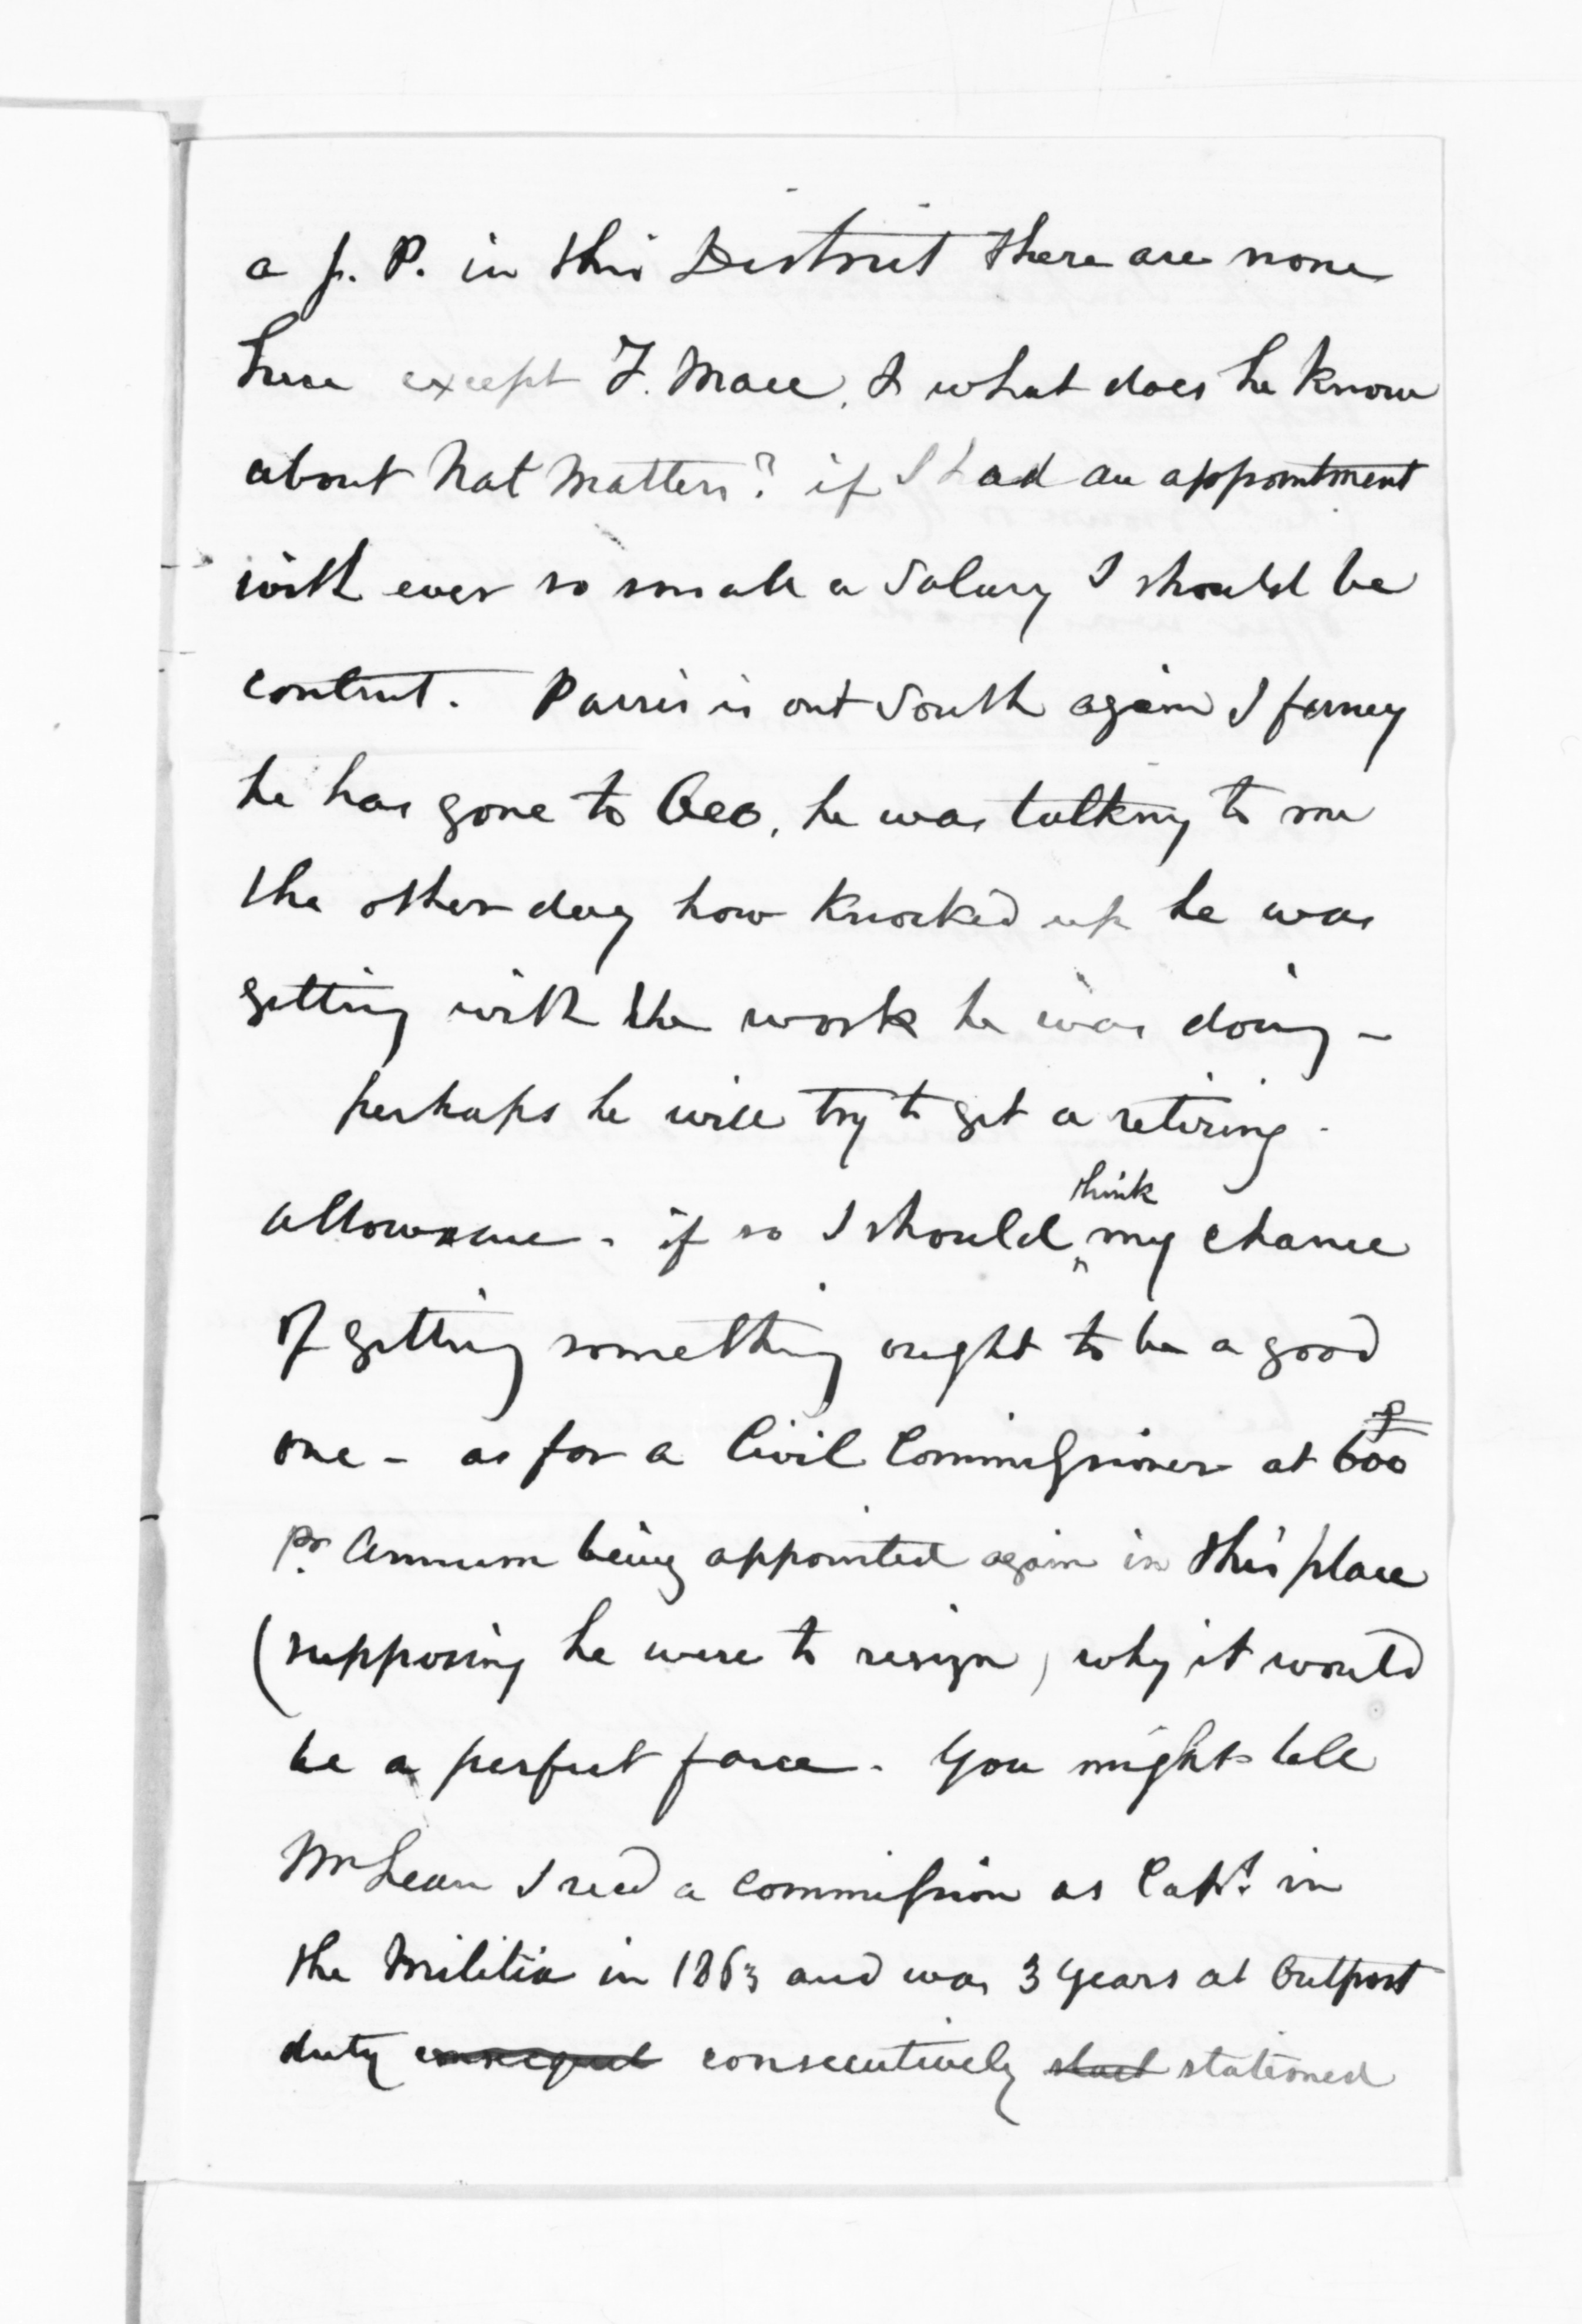 a J. P. in this District there are none
here except F. Mace, & what does he know
about Nat Matters? if I had an appointment
with ever so small a Salary I should be
content. Parris is out South again I fancy
he has gone to Oeo, he was talking to me
the other day how knocked up he was
getting with the work he was doing -
perhaps he will try to get a retiring
allowance - if so I should think my chance
of getting something ought to be a good
one - as for a Civil Commissioner at 600£
pr. Annum being appointed again in this place
(supposing he were to resign) why it would
be a perfect farce. You might tell
McLean I recd a commission as Capt. in
the Militia in 1863 and was 3 years at Outpost
duty consecutively stationed